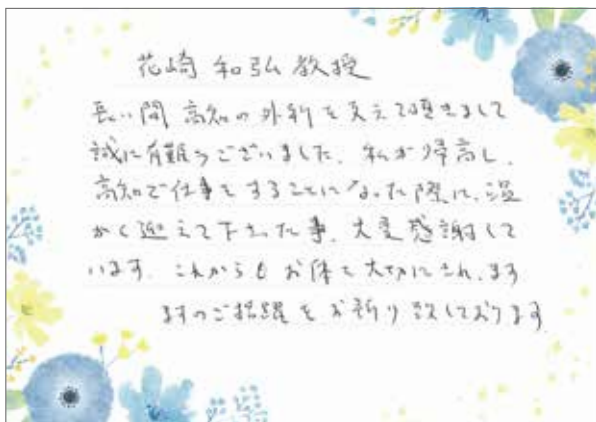 花崎 和弘 教授
長い間 高知の外科を支えて頂きまして
誠に有難うございました。私が帰高し、
高知で仕事をすることになった際に、温
かく迎えて下さった事、大変感謝して
います。これからもお体を大切にされ、ます
ますのご活躍をお祈り致しております